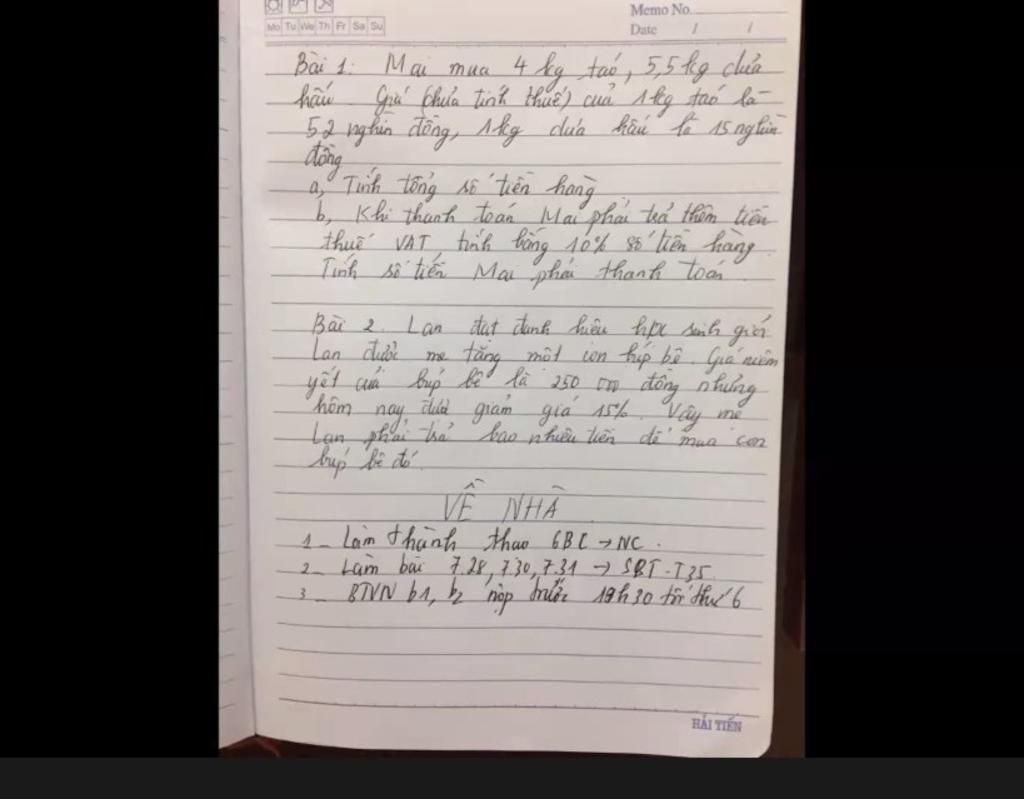 Mo Tu We Th Fr Sa Su
Memo No.
Date / /
Bài 1: Mai mua 4 kg táo, 5,5kg dưa
hấu. Giá (chưa tính thuế) của 1kg táo là
52 nghìn đồng, 1kg dưa hấu là 15 nghìn
đồng
a, Tính tổng số tiền hàng
b, Khi thanh toán Mai phải trả thêm tiền
thuế VAT tính bằng 10% số tiền hàng.
Tính số tiền Mai phải thanh toán.
Bài 2. Lan đạt danh hiệu học sinh giỏi
Lan được mẹ tặng một con búp bê. Giá niêm
yết của búp bê là 250 000 đồng nhưng
hôm nay được giảm giá 15%. Vậy mẹ
Lan phải trả bao nhiêu tiền để mua con
búp bê đó.
VỀ NHÀ
1 - Làm thành thạo 6BC → NC.
2 - Làm bài 7.28, 7.30, 7.31 → SBT-T35
3 - BTVN b1, b2 nộp trước 19h30 tối thứ 6
HẢI TIẾN